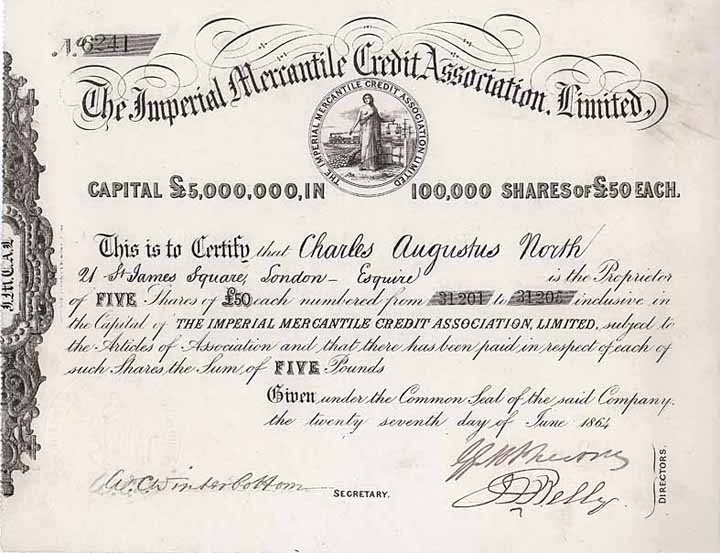 No. 6241
The Imperial Mercantile Credit Association, Limited,
THE IMPERIAL MERCANTILE CREDIT ASSOCIATION LIMITED
CAPITAL £5,000,000, IN 100,000 SHARES OF £50 EACH.
This is to Certify that Charles Augustus North
21 St James Square, London - Esquire is the Proprietor
of FIVE Shares of £50 each numbered from 31201 to 31205 inclusive in
the Capital of THE IMPERIAL MERCANTILE CREDIT ASSOCIATION, LIMITED, subject to
the Articles of Association and that there has been paid in respect of each of
such Shares the Sum of FIVE Pounds
Given under the Common Seal of the said Company.
the twenty seventh day of June 1864
W. C. Winterbottom
SECRETARY.
DIRECTORS.